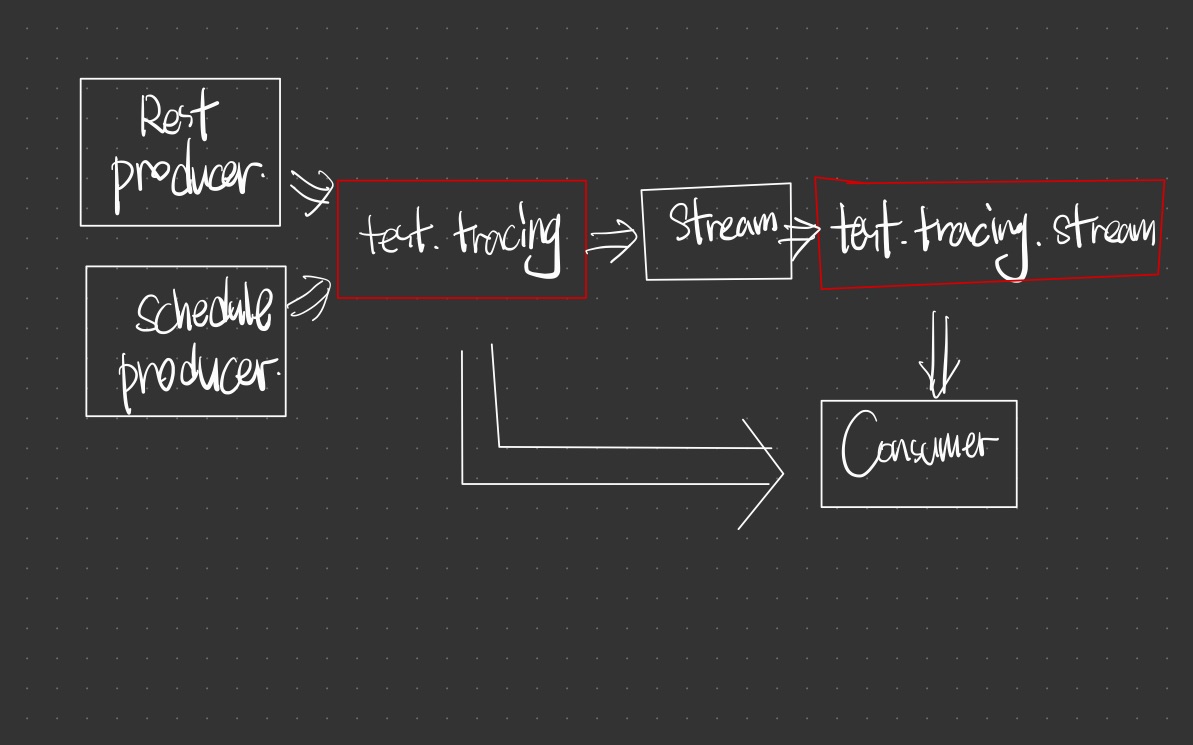 Rest
producer.
schedule
producer.
test.tracing
Stream
test.tracing.stream
Consumer